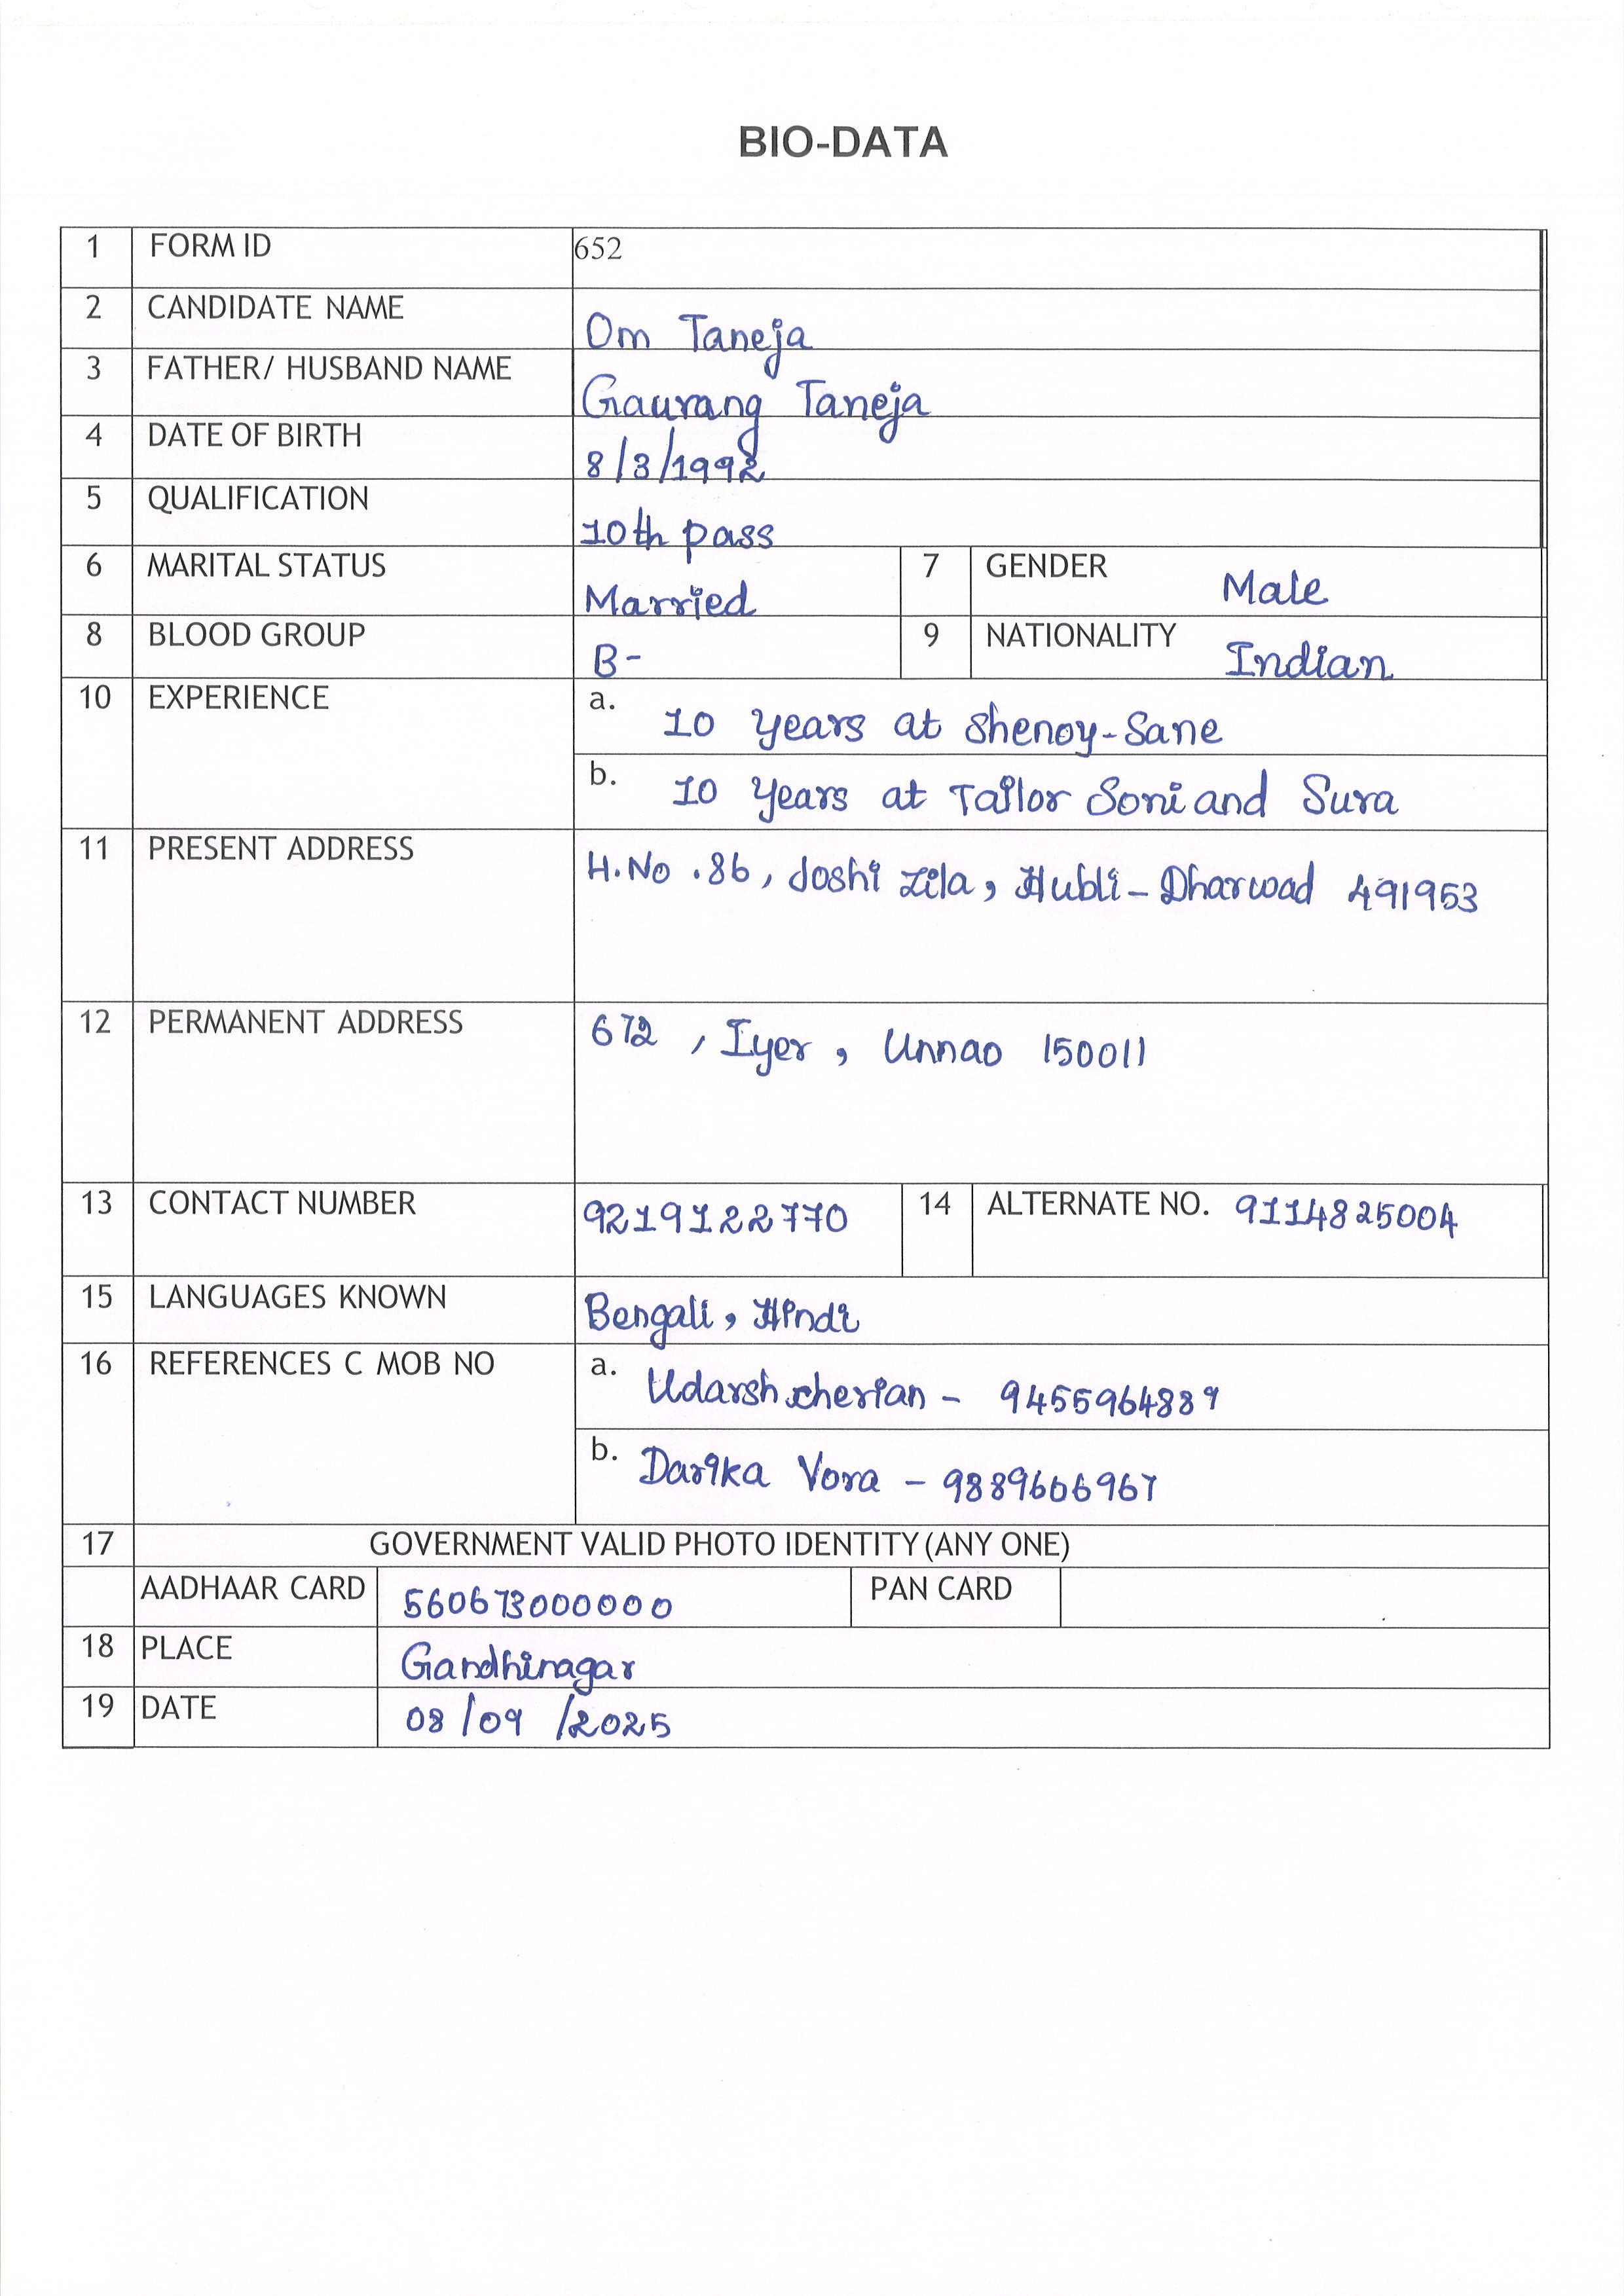 BIO-DATA
1 FORM ID 652
2 CANDIDATE NAME Om Taneja
3 FATHER/ HUSBAND NAME Gaurang Taneja
4 DATE OF BIRTH 8/3/1992
5 QUALIFICATION 10th pass
6 MARITAL STATUS Married 7 GENDER Male
8 BLOOD GROUP B- 9 NATIONALITY Indian
10 EXPERIENCE a. 10 Years at Shenoy-Sane
b. 10 Years at Tailor Soni and Sura
11 PRESENT ADDRESS H.No .86, Joshi Zila, Hubli-Dharwad 491953
12 PERMANENT ADDRESS 672, Iyer, Unnao 150011
13 CONTACT NUMBER 9219122770 14 ALTERNATE NO. 9114825004
15 LANGUAGES KNOWN Bengali, Hindi
16 REFERENCES C MOB NO a. Udarsh cherian - 9455964889
b. Darika Vora - 9889606967
17 GOVERNMENT VALID PHOTO IDENTITY (ANY ONE)
AADHAAR CARD 560673000000 PAN CARD
18 PLACE Gandhinagar
19 DATE 08/09/2025